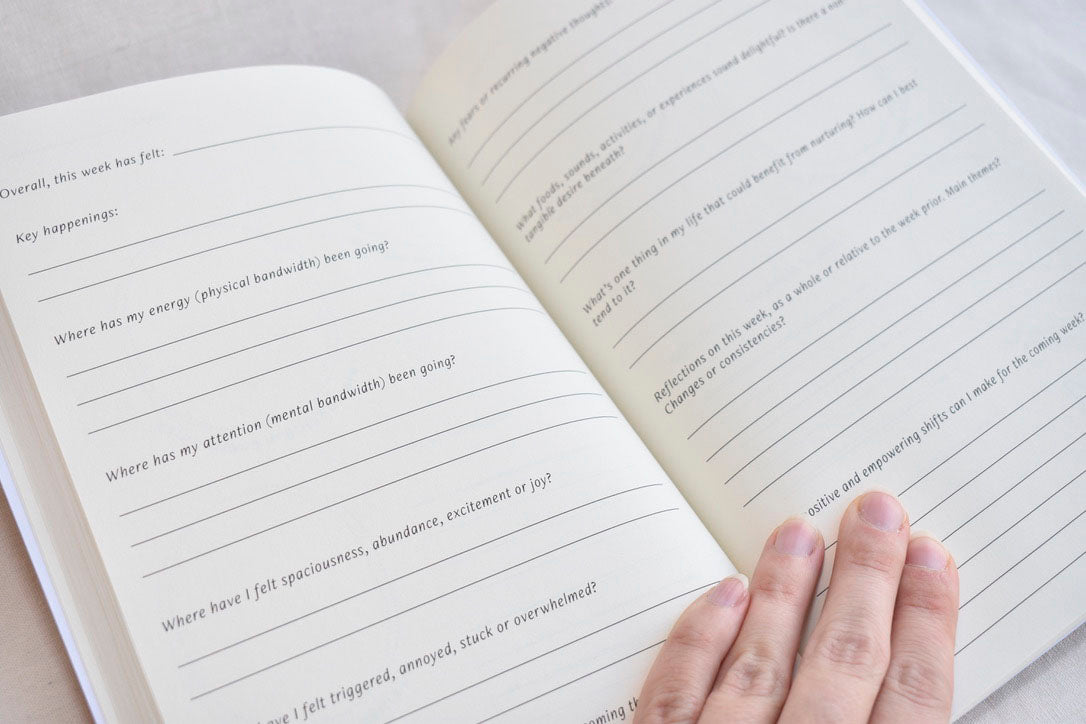 Overall, this week has felt:
Key happenings:
Where has my energy (physical bandwidth) been going?
Where has my attention (mental bandwidth) been going?
Where have I felt spaciousness, abundance, excitement or joy?
have I felt triggered, annoyed, stuck or overwhelmed?
coming th
Any fears or recurring negative thoughts?
What foods, sounds, activities, or experiences sound delightful? Is there a non-
tangible desire beneath?
What's one thing in my life that could benefit from nurturing? How can I best
tend to it?
Reflections on this week, as a whole or relative to the week prior. Main themes?
Changes or consistencies?
ositive and empowering shifts can I make for the coming week?